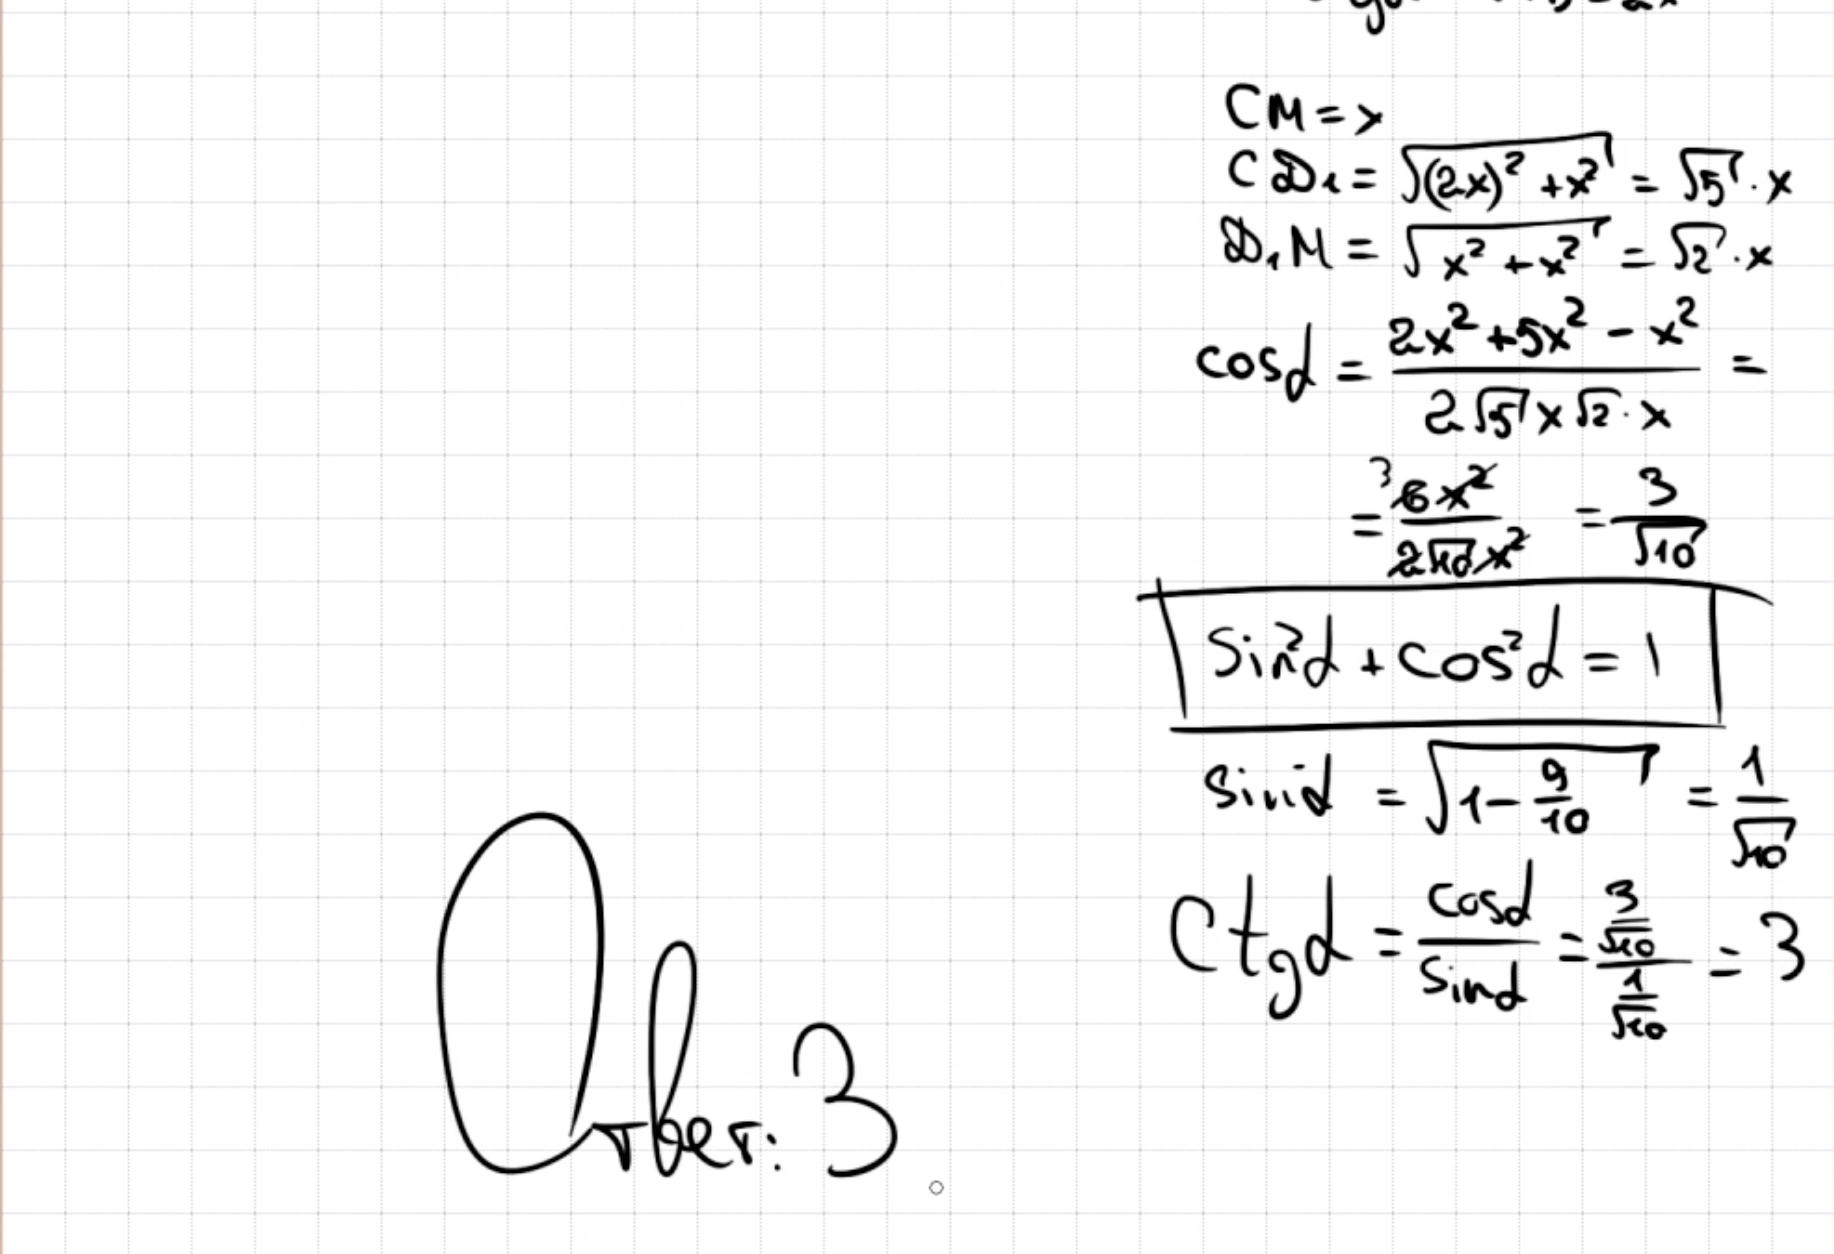 CM = x
CD₁ = √((2x)² + x²) = √5 · x
D₁M = √(x² + x²) = √2 · x
cosα = (2x² + 5x² - x²)/(2√5 x √2 · x) =
= 6x²/(2√10 x²) 3 = 3/√10
sin²α + cos²α = 1
sinα = √(1 - 9/10) = 1/√10
ctgα = cosα/sinα = (3/√10)/(1/√10) = 3
Ответ: 3